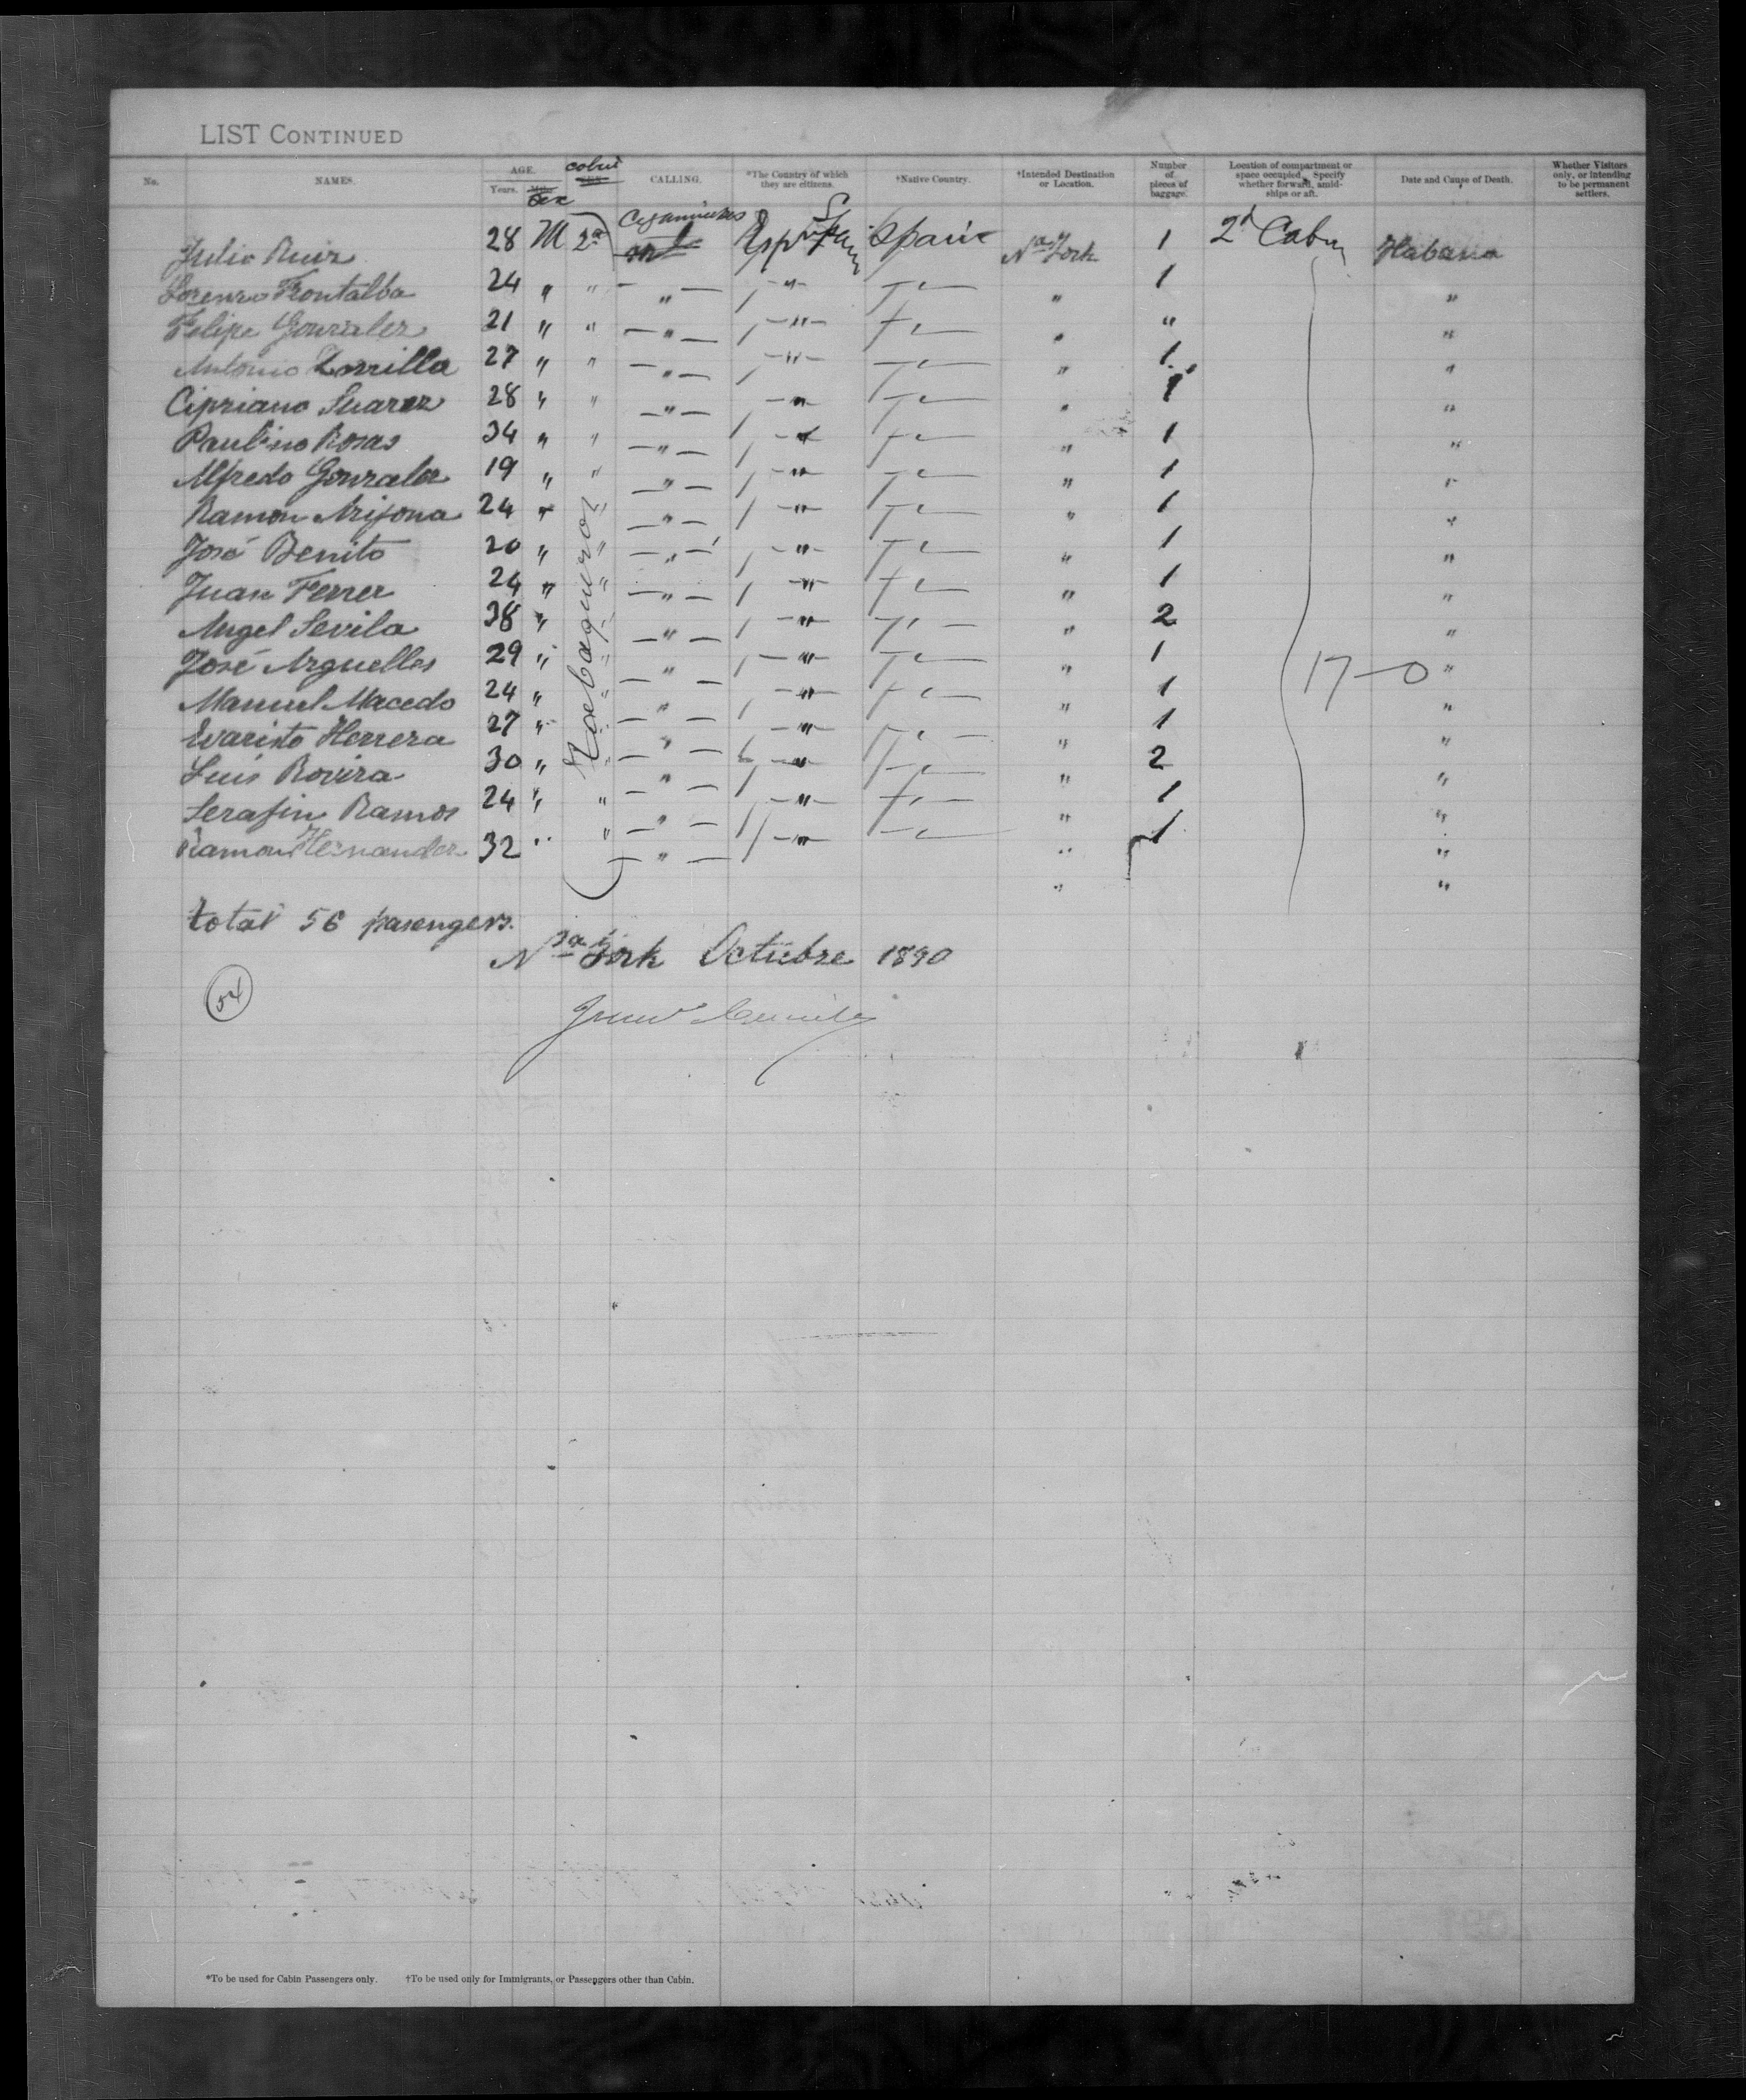 LIST CONTINUED
No. NAMES. AGE. Years. Mths. Sex SEX. CALLING. *The Country of which they are citizens. †Native Country. †Intended Destination or Location. Number of pieces of baggage. Location of compartment or space occupied. Specify whether forward, amidships or aft. Date and Cause of Death. Whether Visitors only, or intending to be permanent settlers.
Julio Ruiz 28 M 2a Spain Spain Na York 1 2d Cabin Habana
Lorenzo Frontalba 24 " " " " " 1 "
Felipe Gonzalez 21 " " " " " " "
Antonio Zorrilla 27 " " " " " 1 "
Cipriano Suarez 28 " " " " " 1 "
Paulino Rosas 34 " " " " " 1 "
Alfredo Gonzalez 19 " " " " " 1 "
Ramon Arijona 24 " " " " " 1 "
José Benito 20 " " " " " 1 "
Juan Ferrer 24 " " " " " 1 "
Angel Sevila 38 " " " " " 2 "
José Arguelles 29 " " " " " 1 17-0 "
Manuel Macedo 24 " " " " " 1 "
Evaristo Herrera 27 " " " " " 1 "
Luis Rovira 30 " " " " " 2 "
Serafin Ramos 24 " " " " " 1 "
Ramon Hernandez 32 " " " " " 1 "
" "
total 56 pasengers.
Na York Octubre 1890
54
*To be used for Cabin Passengers only. †To be used only for Immigrants, or Passengers other than Cabin.